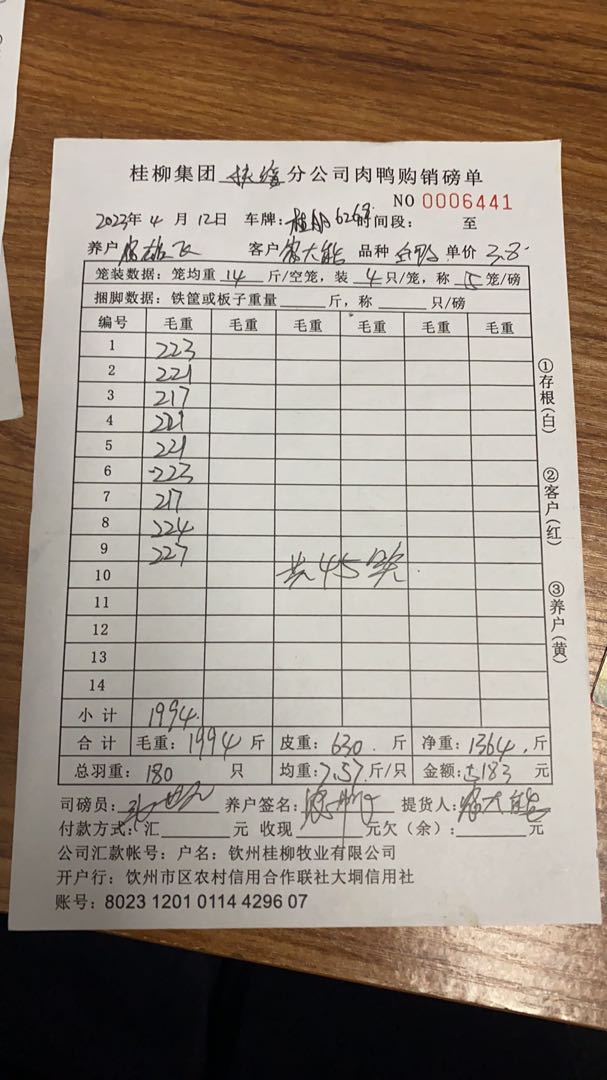 桂柳集团 扶绥 分公司肉鸭购销磅单
NO 0006441
2023年 4 月 12日 车牌: 6268 时间段: 至
养户 客户 大能 品种 单价 3.8
笼装数据: 笼均重 14 斤/空笼, 装 4 只/笼, 称 5 笼/磅
捆脚数据: 铁筐或板子重量 斤, 称 只/磅
编号 毛重 毛重 毛重 毛重 毛重 毛重
1 223
2 221
3 217
4 221
5 221
6 223
7 217
8 224
9 227
10 共45笼
11
12
13
14
小计 1994
合计 毛重: 1994 斤 皮重: 630 斤 净重: 1364 斤
总羽重: 180 只 均重: 7.57 斤/只 金额: 5183 元
司磅员: 养户签名: 提货人: 大能
付款方式: 汇 元 收现 元欠(余): 元
公司汇款帐号: 户名: 钦州桂柳牧业有限公司
开户行: 饮州市区农村信用合作联社大垌信用社
账号: 8023 1201 0114 4296 07
①存根(白)
②客户(红)
③养户(黄)